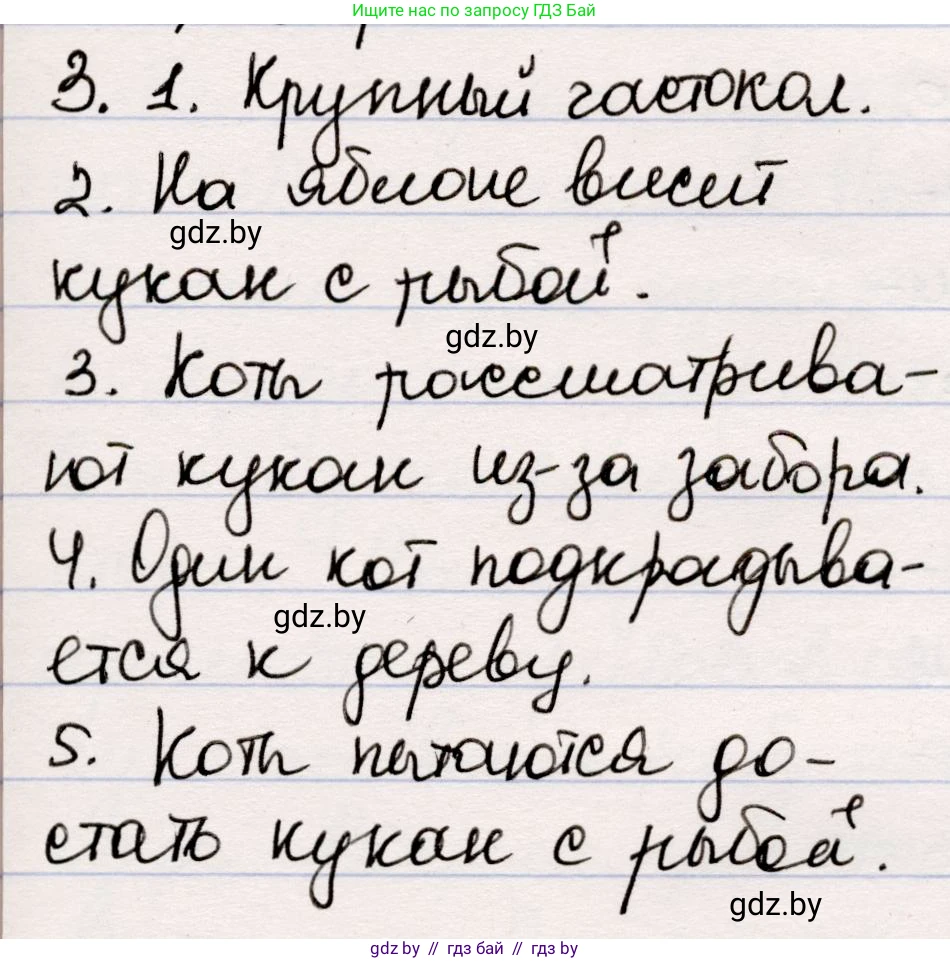 Ищите нас по запросу ГДЗ Бай
3. 1. Крупный частокол.
2. На яблоне висит
gdz.by
кукан с рыбой.
gdz.by
3. Коты рассматрива-
ют кукан из-за забора.
4. Один кот подкрадыва-
gdz.by
ется к дереву.
5. Коты пытаются до-
стать кукан с рыбой.
gdz.by
gdz.by // гдз бай // гдз by